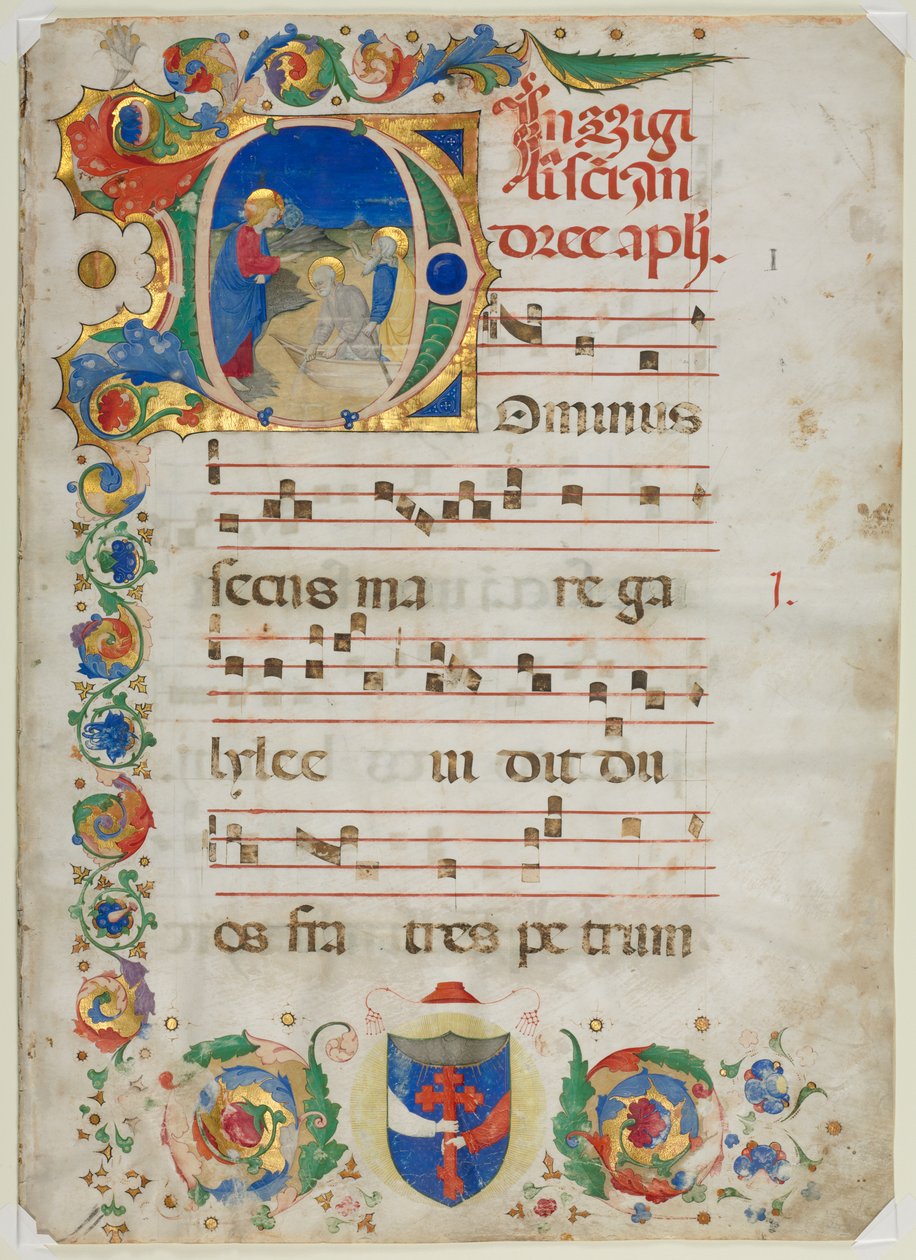 In vigi
li sci an
dree apli.
I
DOminus
secus ma re ga
1.
lylee ui dit du
os fra tres pe trum